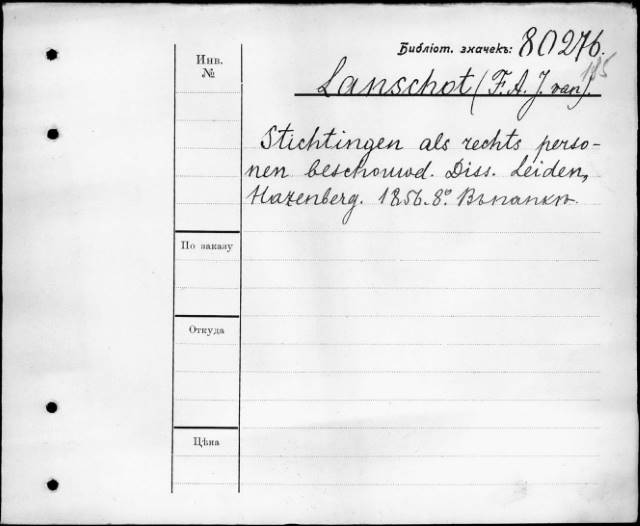 Библіот. значекъ: 80276.
115
Инв.
№
Lanschot (F. A. J. van).
Stichtingen als rechts perso-
nen beschouwd. Diss. Leiden,
Hazenberg. 1856. 8°. Въ папкѣ.
По заказу
Откуда
Цѣна